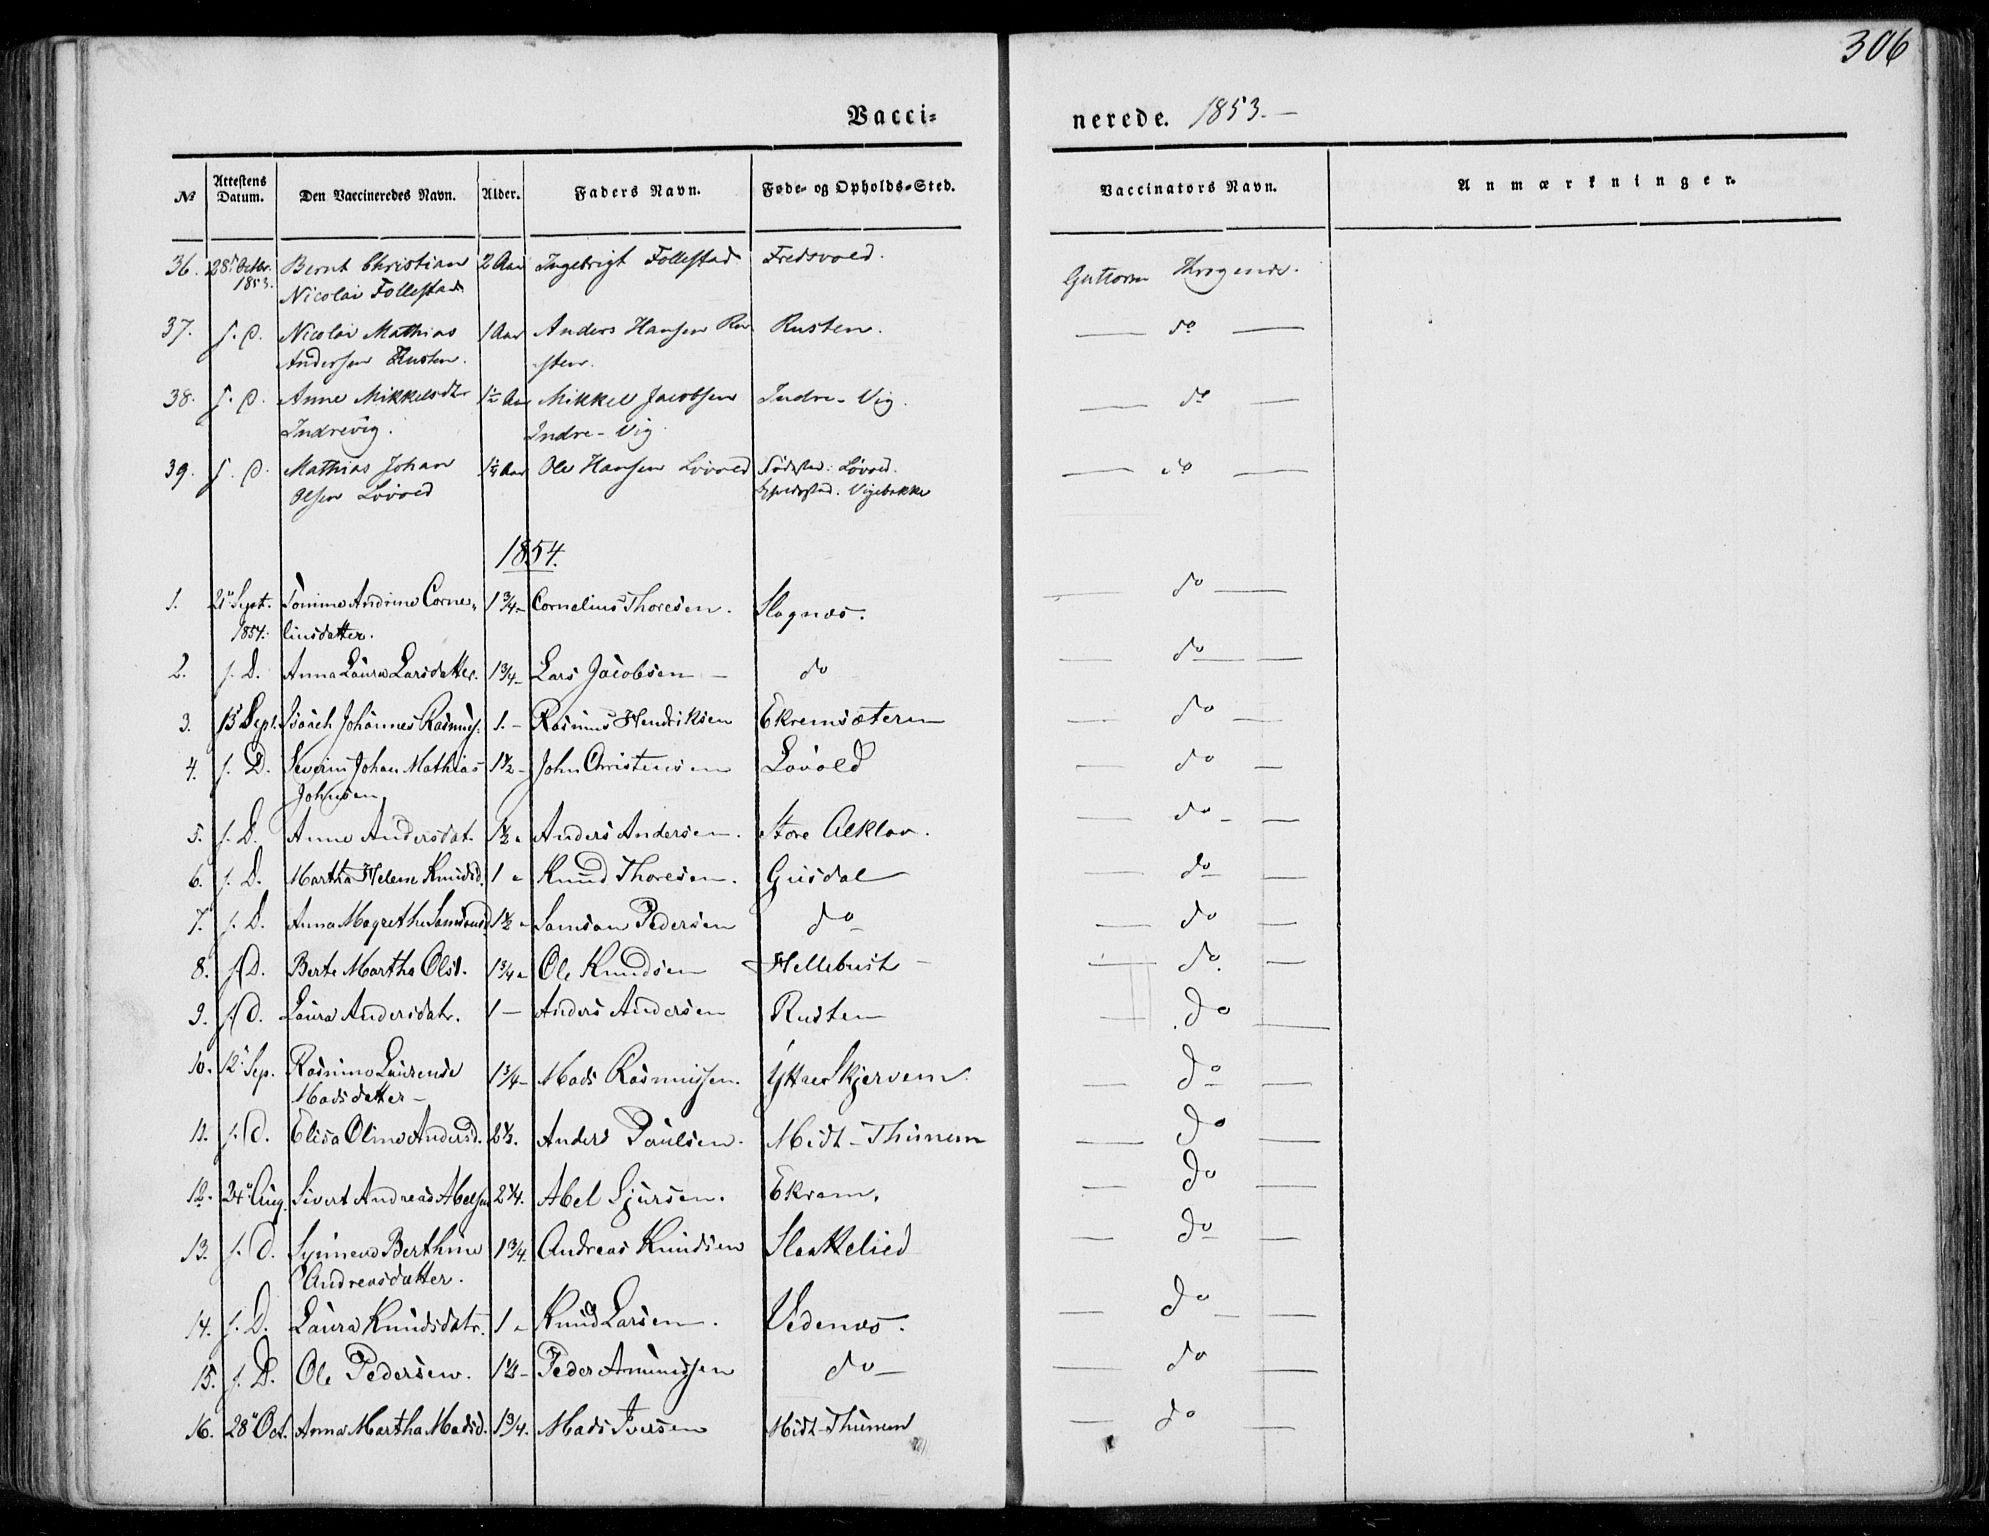 306
Vacci- nerede. 1853.-
№ Attestens Datum. Den Vaccineredes Navn. Alder. Faders Navn. Føde- og Opholds-Sted. Vaccinators Navn. Anmærkninger.
36. 28. Octbr. Bernt Christian 2 Aar Ingebrigt Follestad Fredsvold. Guttorm
1853. Nicolai Follestad
37. s. D. Nicolai Mathias 1 Aar Anders Hansen Ru- Rusten. — do —
Andersen Rusten. sten.
38. s. D. Anne Mikkelsdtr 1½ Aar Mikkel Jacobsen Indre-Vig. — do —
Indrevig. Indre-Vig
39. s. D. Mathias Johan Aar Ole Hansen Lövold Födested: Lövold. — do —
Olsen Lövold Vigebakke
1854.
1. 21 Sept. Andrine Corne- 1¾- Cornelius Thoresen. Slagnæs. — do —
1854. liusdatter.
2. s. D. Anna Laura Larsdatter. 1¾- Lars Jacobsen — do — do —
3. 13 Sept. Isaach Johannes Rasmus. 1.- Rasmus Hendriksen Ekremsæteren — do —
4. s. D. Severin Johan Mathias 1½- John Christensen Lövold — do —
Johnsen
5. s. D. Anne Andersdat. 1½- Anders Andersen. Store Alklov. — do —
6. s. D. Martha Helene Knudsd. 1 - Knud Thoresen. Gusdal — do —
7. s. D. Anna Magrethe Samsonsd. 1½- Samson Pedersen do — do —
8. s. D. Berte Martha Olsd. 1¾- Ole Knudsen Hellebust — — do. —
9. s. D. Laura Andersdatr. 1 — Anders Andersen Rusten — do —
10. 12 Sep. Rasmine Laurense 1¾- Mads Rasmussen. Yttre Skjervem. — do —
Madsdatter —
11. s. D. Elisa Oline Andersd. 2½. Anders Paulsen. Midt-Thunem — do —
12. 24 Aug. Sivert Andreas Abelsen 2¼. Abel Sjursen. Ekrem. — do —
13. s. D. Synneve Berthine 1¾. Andreas Knudsen Slettelied — do —
Andreasdatter.
14. s. D. Laura Knudsdatr. 1 - Knud Larsen. Vedenæs. — do —
15. s. D. Ole Pedersen. Peder Amundsen do — — do —
16. 28 Oct. Anna Martha Madsd. 1¾. Mads Iversen Midt-Thunem — do —